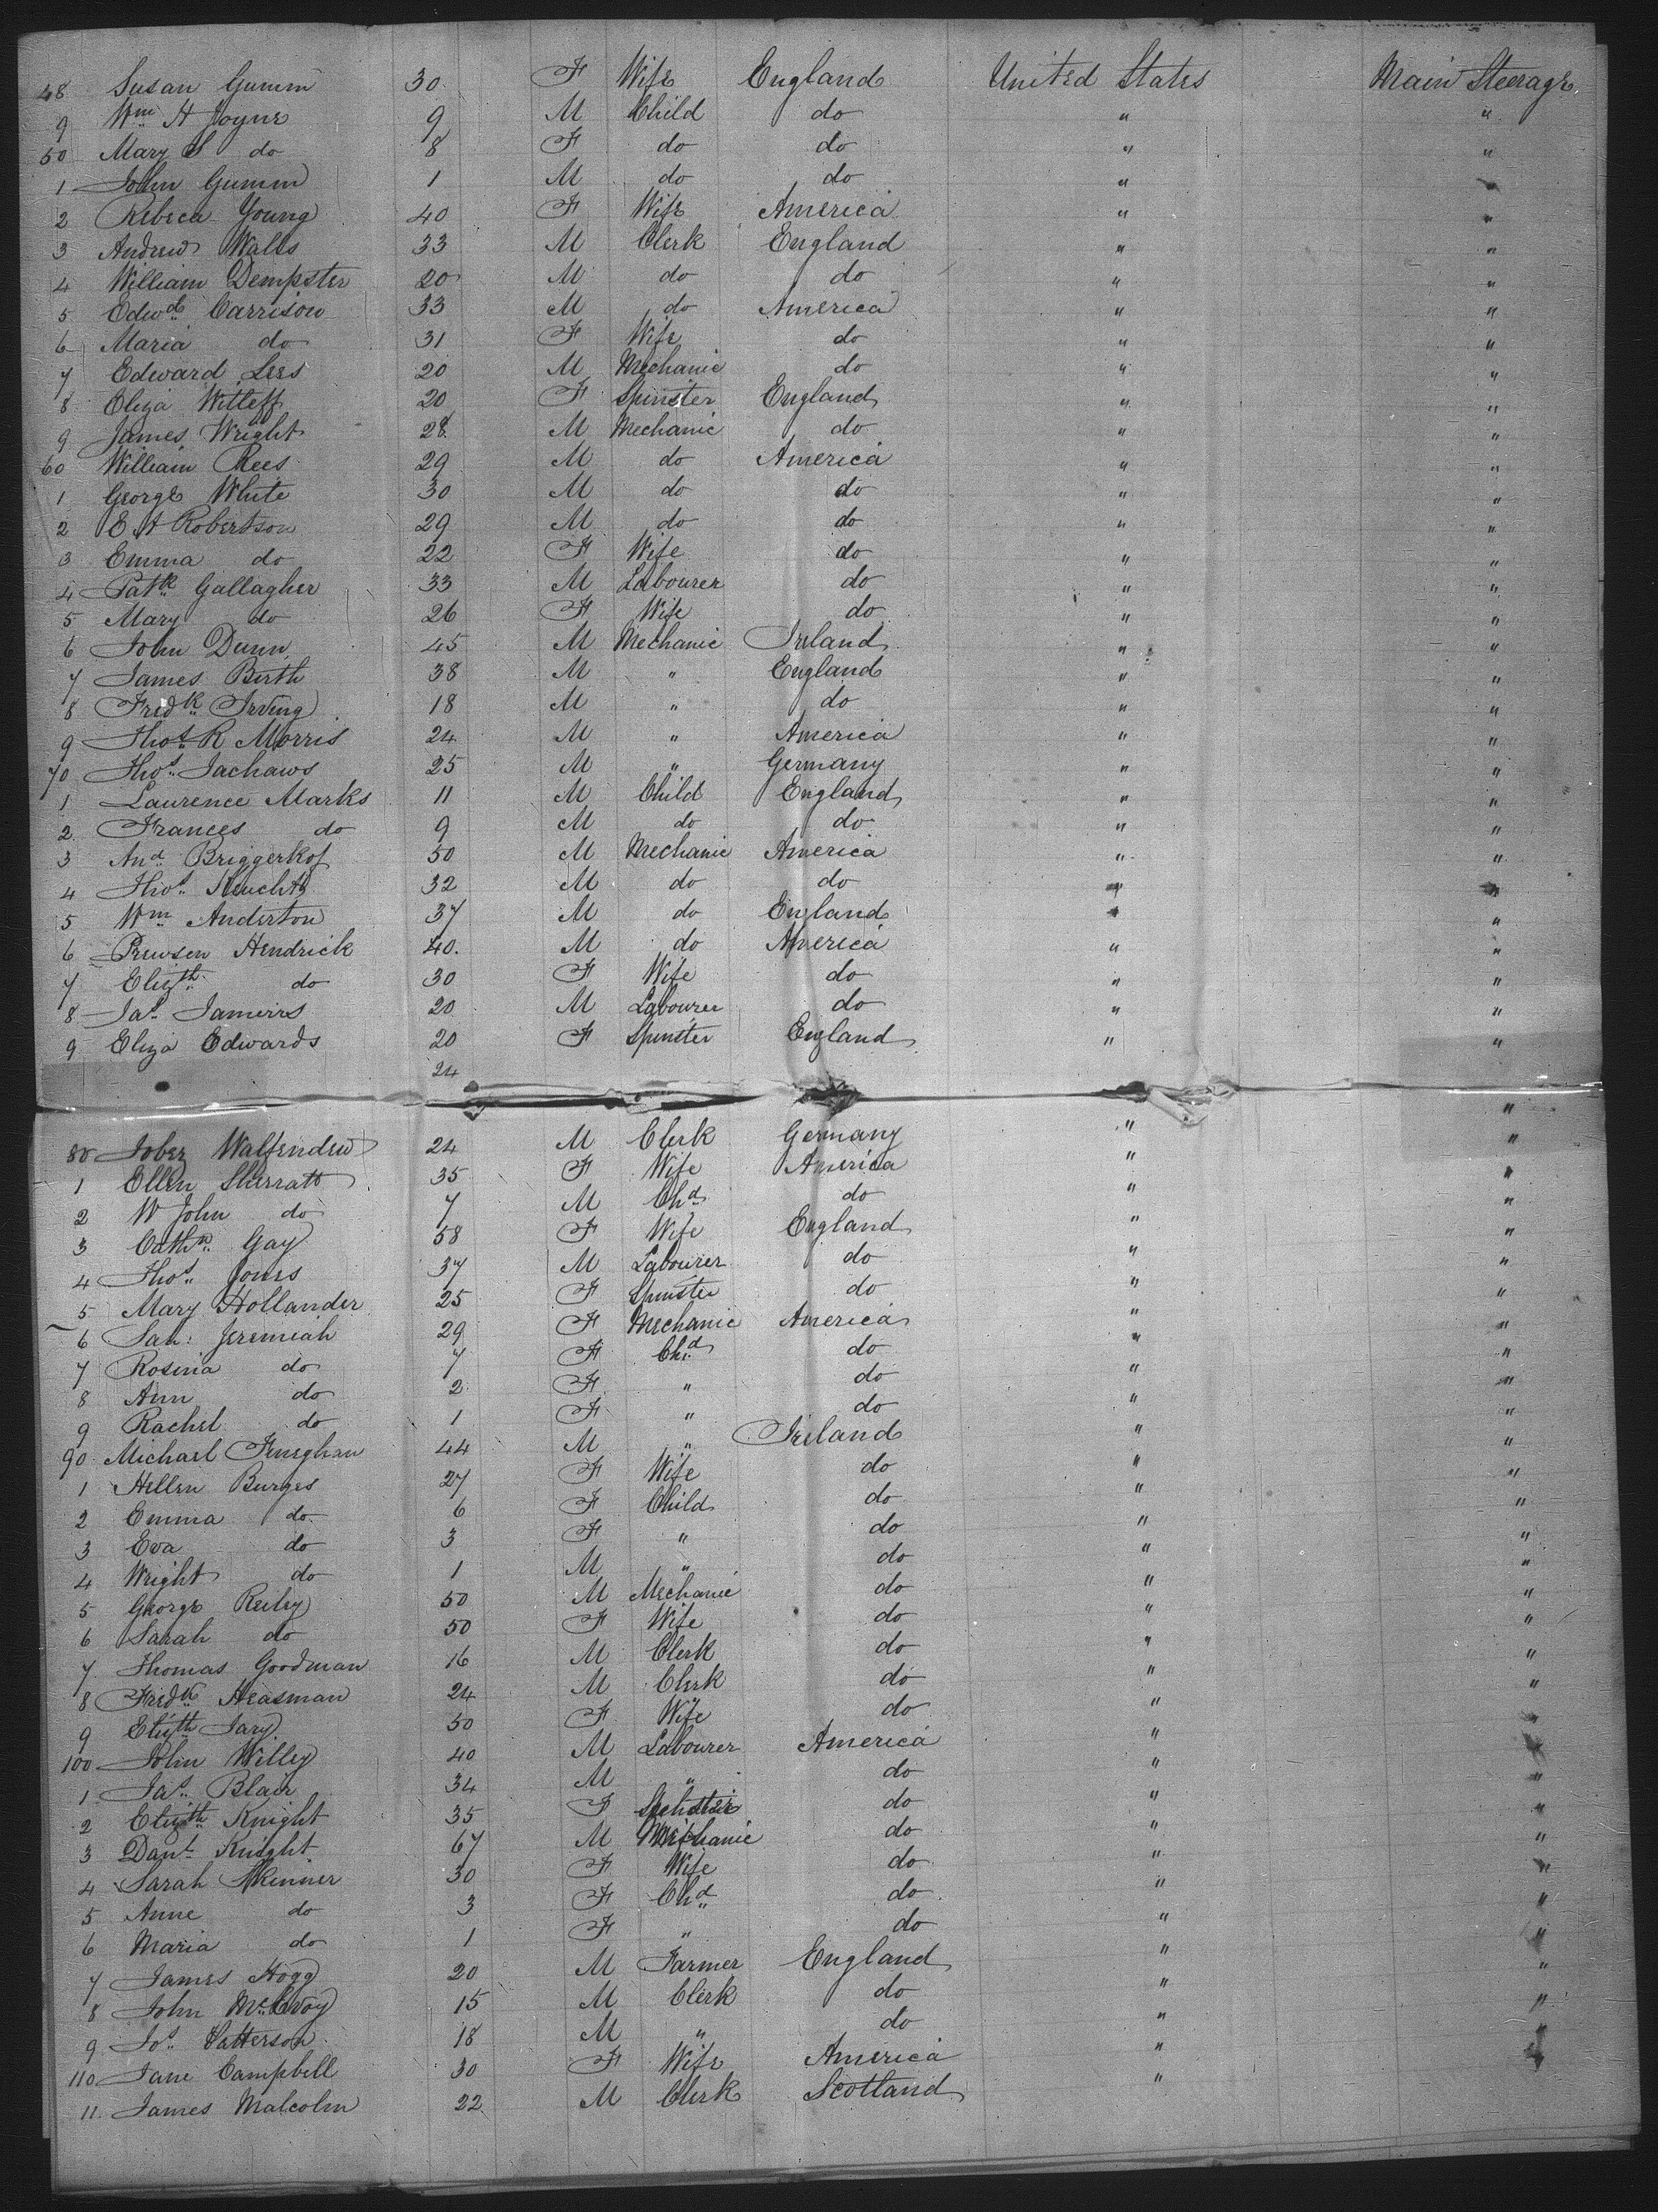 48 Susan Gumm 30 F Wife England United States Main Steerage
9 Wm H Joyne 9 M Child do " "
50 Mary S do 8 F do do " "
1 John Gumm 1 M do do "
2 Rebeca Young 40 F Wife America " "
3 Andrew Walls 33 M Clerk England " "
4 William Dempster 20 M do do " "
5 Edwd Carrison 33 M do America " "
6 Maria do 31 F Wife do " "
7 Edward Lees 20 M Mechanic do " "
8 Eliza Witleff 20 F Spinster England " "
9 James Wright 28 M Mechanic do " "
60 William Rees 29 M do America " "
1 George White 30 M do do " "
2 E A Robertson 29 M do do " "
3 Emma do 22 F Wife do " "
4 Patk Gallagher 33 M Labourer do " "
5 Mary do 26 F Wife do " "
6 John Dunn 45 M Mechanic Ireland " "
7 James Birth 38 M " England " "
8 Fredk Irving 18 M " do " "
9 Thos R Morris 24 M " America " "
70 Thos Jachaws 25 M " Germany " "
1 Laurence Marks 11 M Child England " "
2 Frances do 9 M do do " "
3 And Briggerkof 50 M Mechanic America " "
4 Thos 32 M do do " "
5 Wm Anderton 37 M do England " "
6 Hendrick 40 M do America " "
7 Elizth do 30 F Wife do " "
8 Jas 20 M Labourer do " "
9 Eliza Edwards 20 F Spinster England " "
24
"
80 24 M Clerk Germany " "
1 Ellen Sherratt 35 F Wife America " "
2 W John do 7 M Chd do " "
3 Cathn Gay 58 F Wife England " "
4 Thos Jones 37 M Labourer do " "
5 Mary Hollander 25 F Spinster do " "
6 Sah: Jeremiah 29 F Mechanic America " "
7 Rosina do 7 F Chd do " "
8 Ann do 2 F " do " "
9 Rachel do 1 F " do " "
90 Michael 44 M " Ireland " "
1 Hellen Burges 27 F Wife do " "
2 Emma do 6 F Child do " "
3 Eva do 3 F " do " "
4 Wright do 1 M " do " "
5 George Reiley 50 M Mechanic do " "
6 Sarah do 50 F Wife do " "
7 Thomas Goodman 16 M Clerk do " "
8 Fredk Heasman 24 M Clerk do " "
9 Elizth Jary 50 F Wife do " "
100 John Willey 40 M Labourer America " "
1 Jas Blair 34 M " do " "
2 Elizth Knight 35 F do " "
3 Danl Knight 67 M Mechanic do " "
4 Sarah Skinner 30 F Wife do " "
5 Anne do 3 F Chd do " "
6 Maria do 1 F " do " "
7 James Hogg 20 M Farmer England " "
8 John McEvoy 15 M Clerk do " "
9 Jos Patterson 18 M " do " "
110 Jane Campbell 30 F Wife America " "
11 James Malcolm 22 M Clerk Scotland "